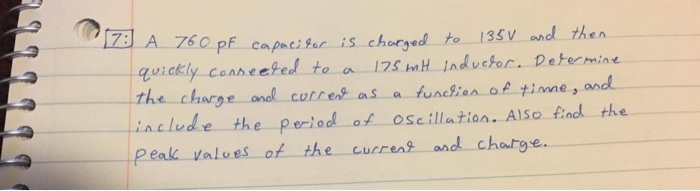 7: A 760 pF capacitor is charged to 135V and then
quickly connected to a 175 mH inductor. Determine
the charge and current as a function of time, and
include the period of oscillation. Also find the
peak values of the current and charge.